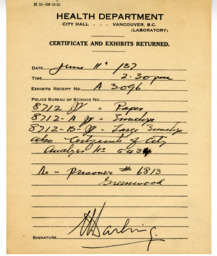 HEALTH DEPARTMENT
CITY HALL . . . VANCOUVER, B.C.
(LABORATORY)
CERTIFICATE AND EXHIBITS RETURNED.
DATE June 11" 137
TIME 2.30 pm
EXHIBITS RECEIPT NO. A 3096
POLICE BUREAU OF SCIENCE NO.
8712 - Paper
8712-A - Envelope
8712-B - Large Envelope
also Certificate of City
Analyst No 5434
Re - Prisoner # 6813
Greenwood
SIGNATURE